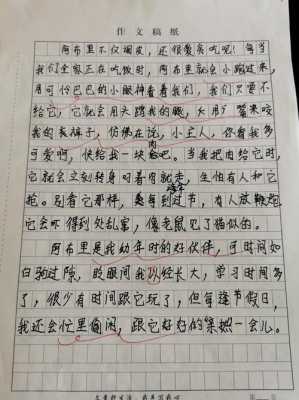 作文稿纸
阿布里不仅调皮，还很爱贪吃呢！每当
我们全家正在吃饭时，阿布里就会小跑过来，
用可怜巴巴的小眼神看着我们，我们只要不
给它，它就会用头蹭我的腿，用嘴来咬
我的裤子，仿佛在说，小主人，你看我多
可爱啊，快给我一块肉吧。当我把肉给它时，
它就会立刻转身叼着肉就走，生怕有人和它
抢。别看它那样，每到过节，有人放鞭炮，
它会吓得到处乱窜，像老鼠见了猫似的。
阿布里是我幼年时的好伙伴，可时间如
白驹过隙，眨眼间我已经长大，学习时间多
了，很少有时间跟它玩了，但每逢节假日，
我还会忙里偷闲，跟它好好的一会儿。